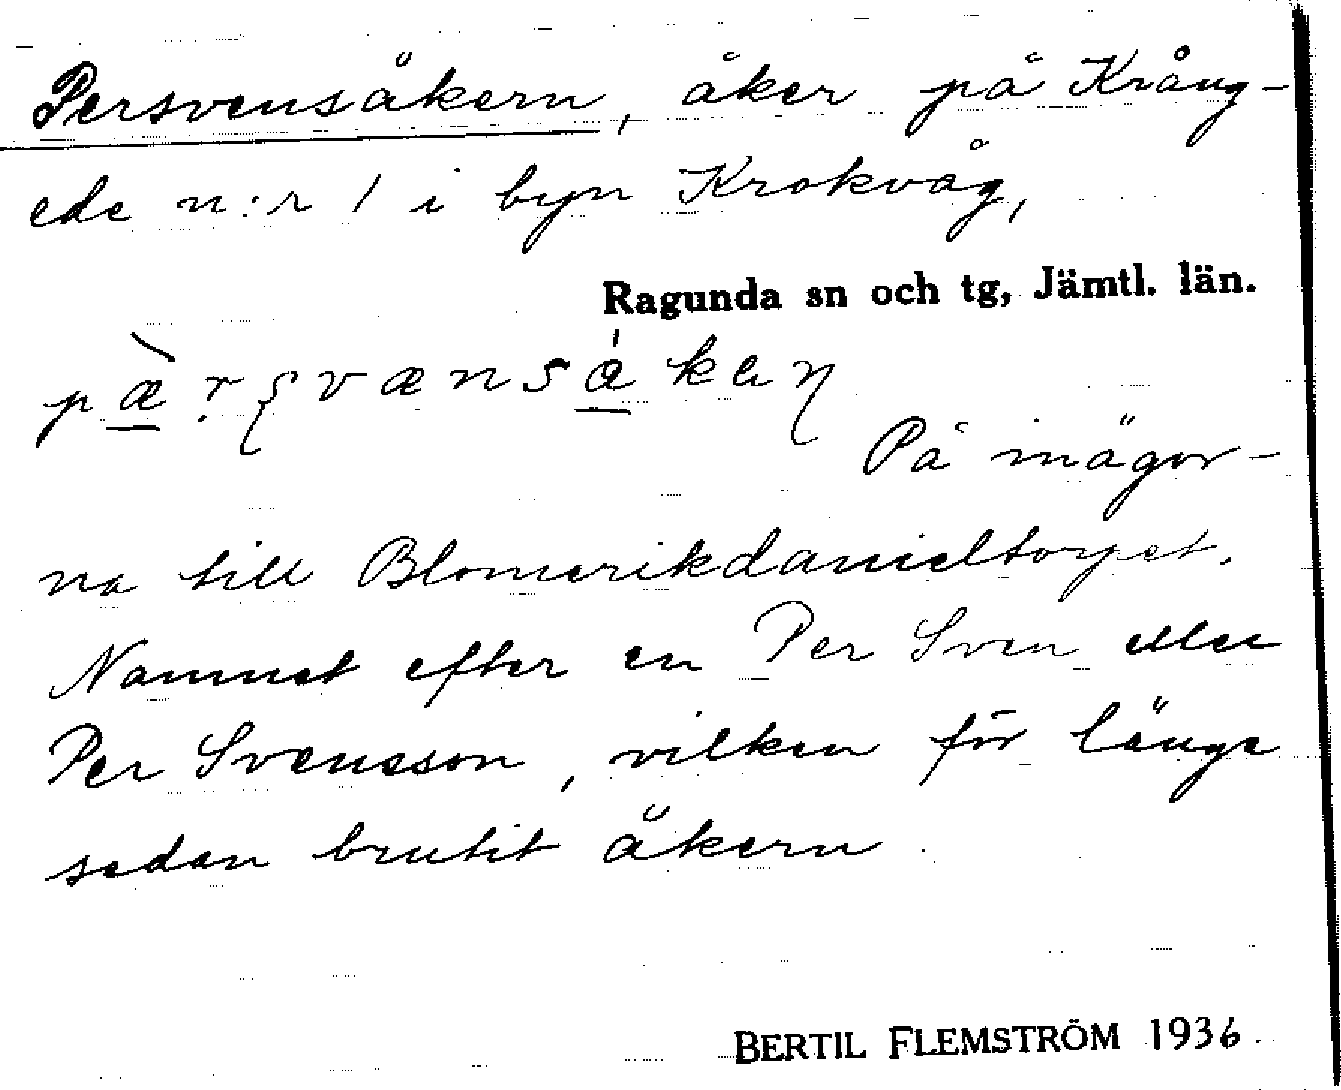 Persvensåkern, åker på Krång-
ede n:r 1 i byn Krokvåg,
Ragunda sn och tg, Jämtl. län.
På inägor-
na till Blomerikdanieltorpet.
Namnet efter en Per Sven eller
Per Svensson, vilken för länge
sedan brutit åkern.
BERTIL FLEMSTRÖM 1936